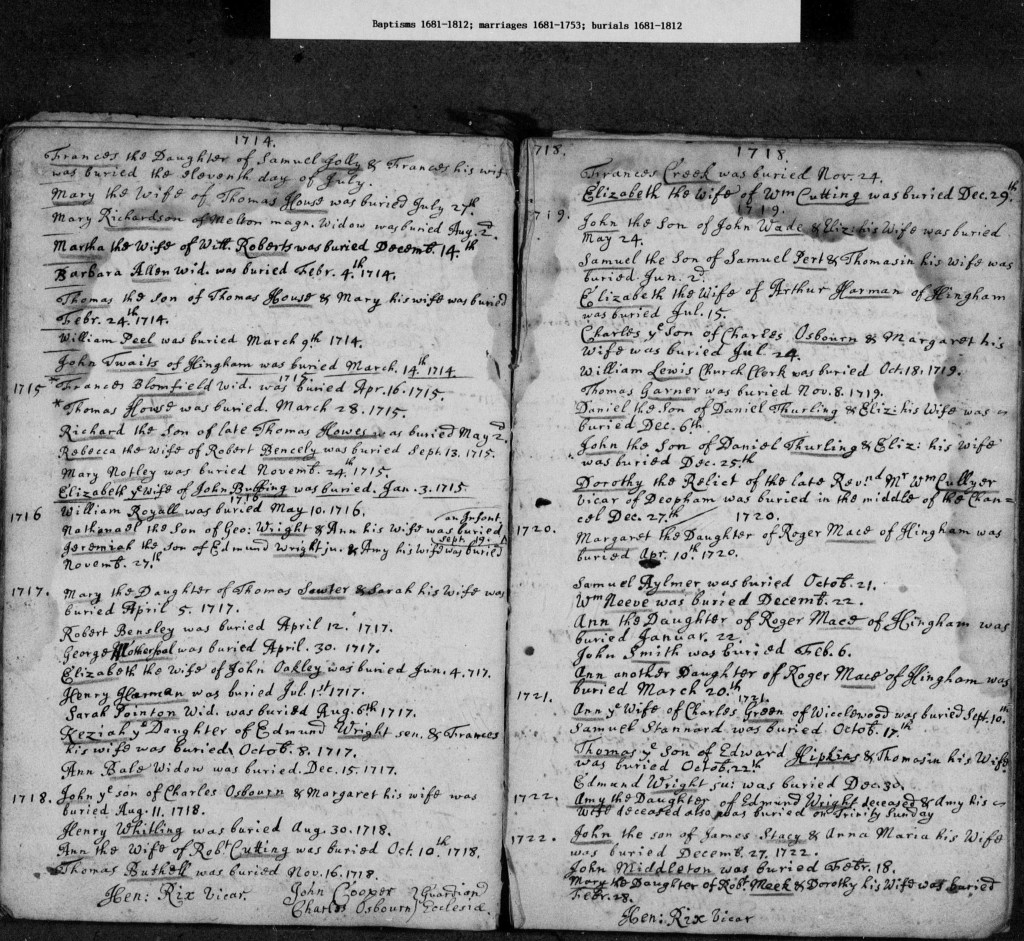 Baptisms 1681-1812; marriages 1681-1753; burials 1681-1812
1714.
Frances the Daughter of Samuel Jolly & Frances his wife
was buried the eleventh day of July.
Mary the Wife of Thomas House was buried July 27th.
Mary Richardson of Melton magn. Widow was buried Aug. 2d.
Martha the Wife of Will. Roberts was buried Decemb. 14th
Barbara Allen Wid. was buried Febr. 4th. 1714.
Thomas the Son of Thomas House & Mary his wife was buried
Febr. 24th. 1714.
William Peel was buried March 9th 1714.
John Twaits of Hingham was buried March. 14th 1714
1715
1715 * Frances Blomfield Wid. was buried Apr. 16. 1715.
* Thomas House was buried. March 28. 1715.
Richard the Son of late Thomas Howes was buried May 2d.
Rebecca the Wife of Robert Bencely was buried Sept. 13. 1715.
Mary Notley was buried Novemb. 24th. 1715.
Elizabeth ye Wife of John Buffing was buried. Jan. 3. 1715
1716
1716 William Royall was buried May 10. 1716.
an Infant
Nathanael the Son of Geo: Wright & Ann his Wife was buried
Sept. 19.
Jeremiah the Son of Edmund Wright ju: & Amy his Wife was buried
Novemb. 27th
1717. Mary the Daughter of Thomas Sewter & Sarah his Wife was
buried April 5. 1717.
Robert Bensley was buried April 12. 1717.
George Motherpol was buried April. 30. 1717.
Elizabeth the Wife of John Oakley was buried Jun. 4. 717.
Henry Harman was buried Jul. 1st 1717.
Sarah Pointon Wid. was buried Aug. 6th 1717.
Keziah ye Daughter of Edmund Wright sen. & Frances
his wife was buried Octob. 8. 1717.
Ann Bale Widow was buried. Dec. 15. 1717.
1718. John ye Son of Charles Osbourn & Margaret his wife was
buried Aug. 11. 1718.
Henry Whitling was buried Aug. 30. 1718.
Ann the Wife of Robt Cutting was buried Oct. 10th 1718.
Thomas was buried Nov. 16. 1718.
Hen: Rix Vicar. John Cooper } Guardian
Charles Osbourn } Ecclesiæ.
718. 1718
Frances Creek was buried Nov. 24.
Elizabeth the Wife of Wm Cutting was buried Dec. 29th.
1719.
719. John the Son of John Wade & Eliz: his Wife was buried
May 24.
Samuel the Son of Samuel Pert & Thomasin his Wife was
buried Jun. 2d.
Elizabeth the Wife of Arthur Harman of Hingham
was buried Jul. 15.
Charles ye Son of Charles Osbourn & Margaret his
Wife was buried Jul. 24.
William Lewis Church Clerk was buried Oct. 18. 1719.
Thomas Garner was buried Nov. 8. 1719.
Daniel the Son of Daniel Thurling & Eliz: his Wife was
buried Dec. 6th.
John the Son of Daniel Thurling & Eliz: his Wife
was buried Dec. 25th
Dorothy the Relict of the late Revnd Mr Wm Cullyer
Vicar of Deopham was buried in the middle of the Chan-
cel Dec. 27th / 1720.
1720. Margaret the Daughter of Roger Mace of Hingham was
buried Apr. 10th. 1720.
Samuel Aylmer was buried Octob. 21.
Wm Neeve was buried Decemb. 22.
Ann the Daughter of Roger Mace of Hingham was
buried Januar. 22.
John Smith was buried Feb. 6.
Ann another Daughter of Roger Mace of Hingham was
buried March 20th
1721.
1721. Ann ye Wife of Charles Green of Wicclewood was buried Sept. 10th
Samuel Stannard was buried Octob. 17th
Thomas ye Son of Edward Hipkins & Thomasin his Wife
was buried Octob. 22th
Edmund Wright su: was buried Dec. 30.
1722. Amy the Daughter of Edmund Wright deceased & Amy his
Wife deceased also was buried on Trinity Sunday
1722. John the Son of James Stacy & Anna Maria his Wife
was buried Decemb. 27. 1722.
John Middleton was buried Febr. 18.
Mary the Daughter of Robt. Meek & Dorothy his Wife was buried
Febr. 28.
Hen: Rix Vicar